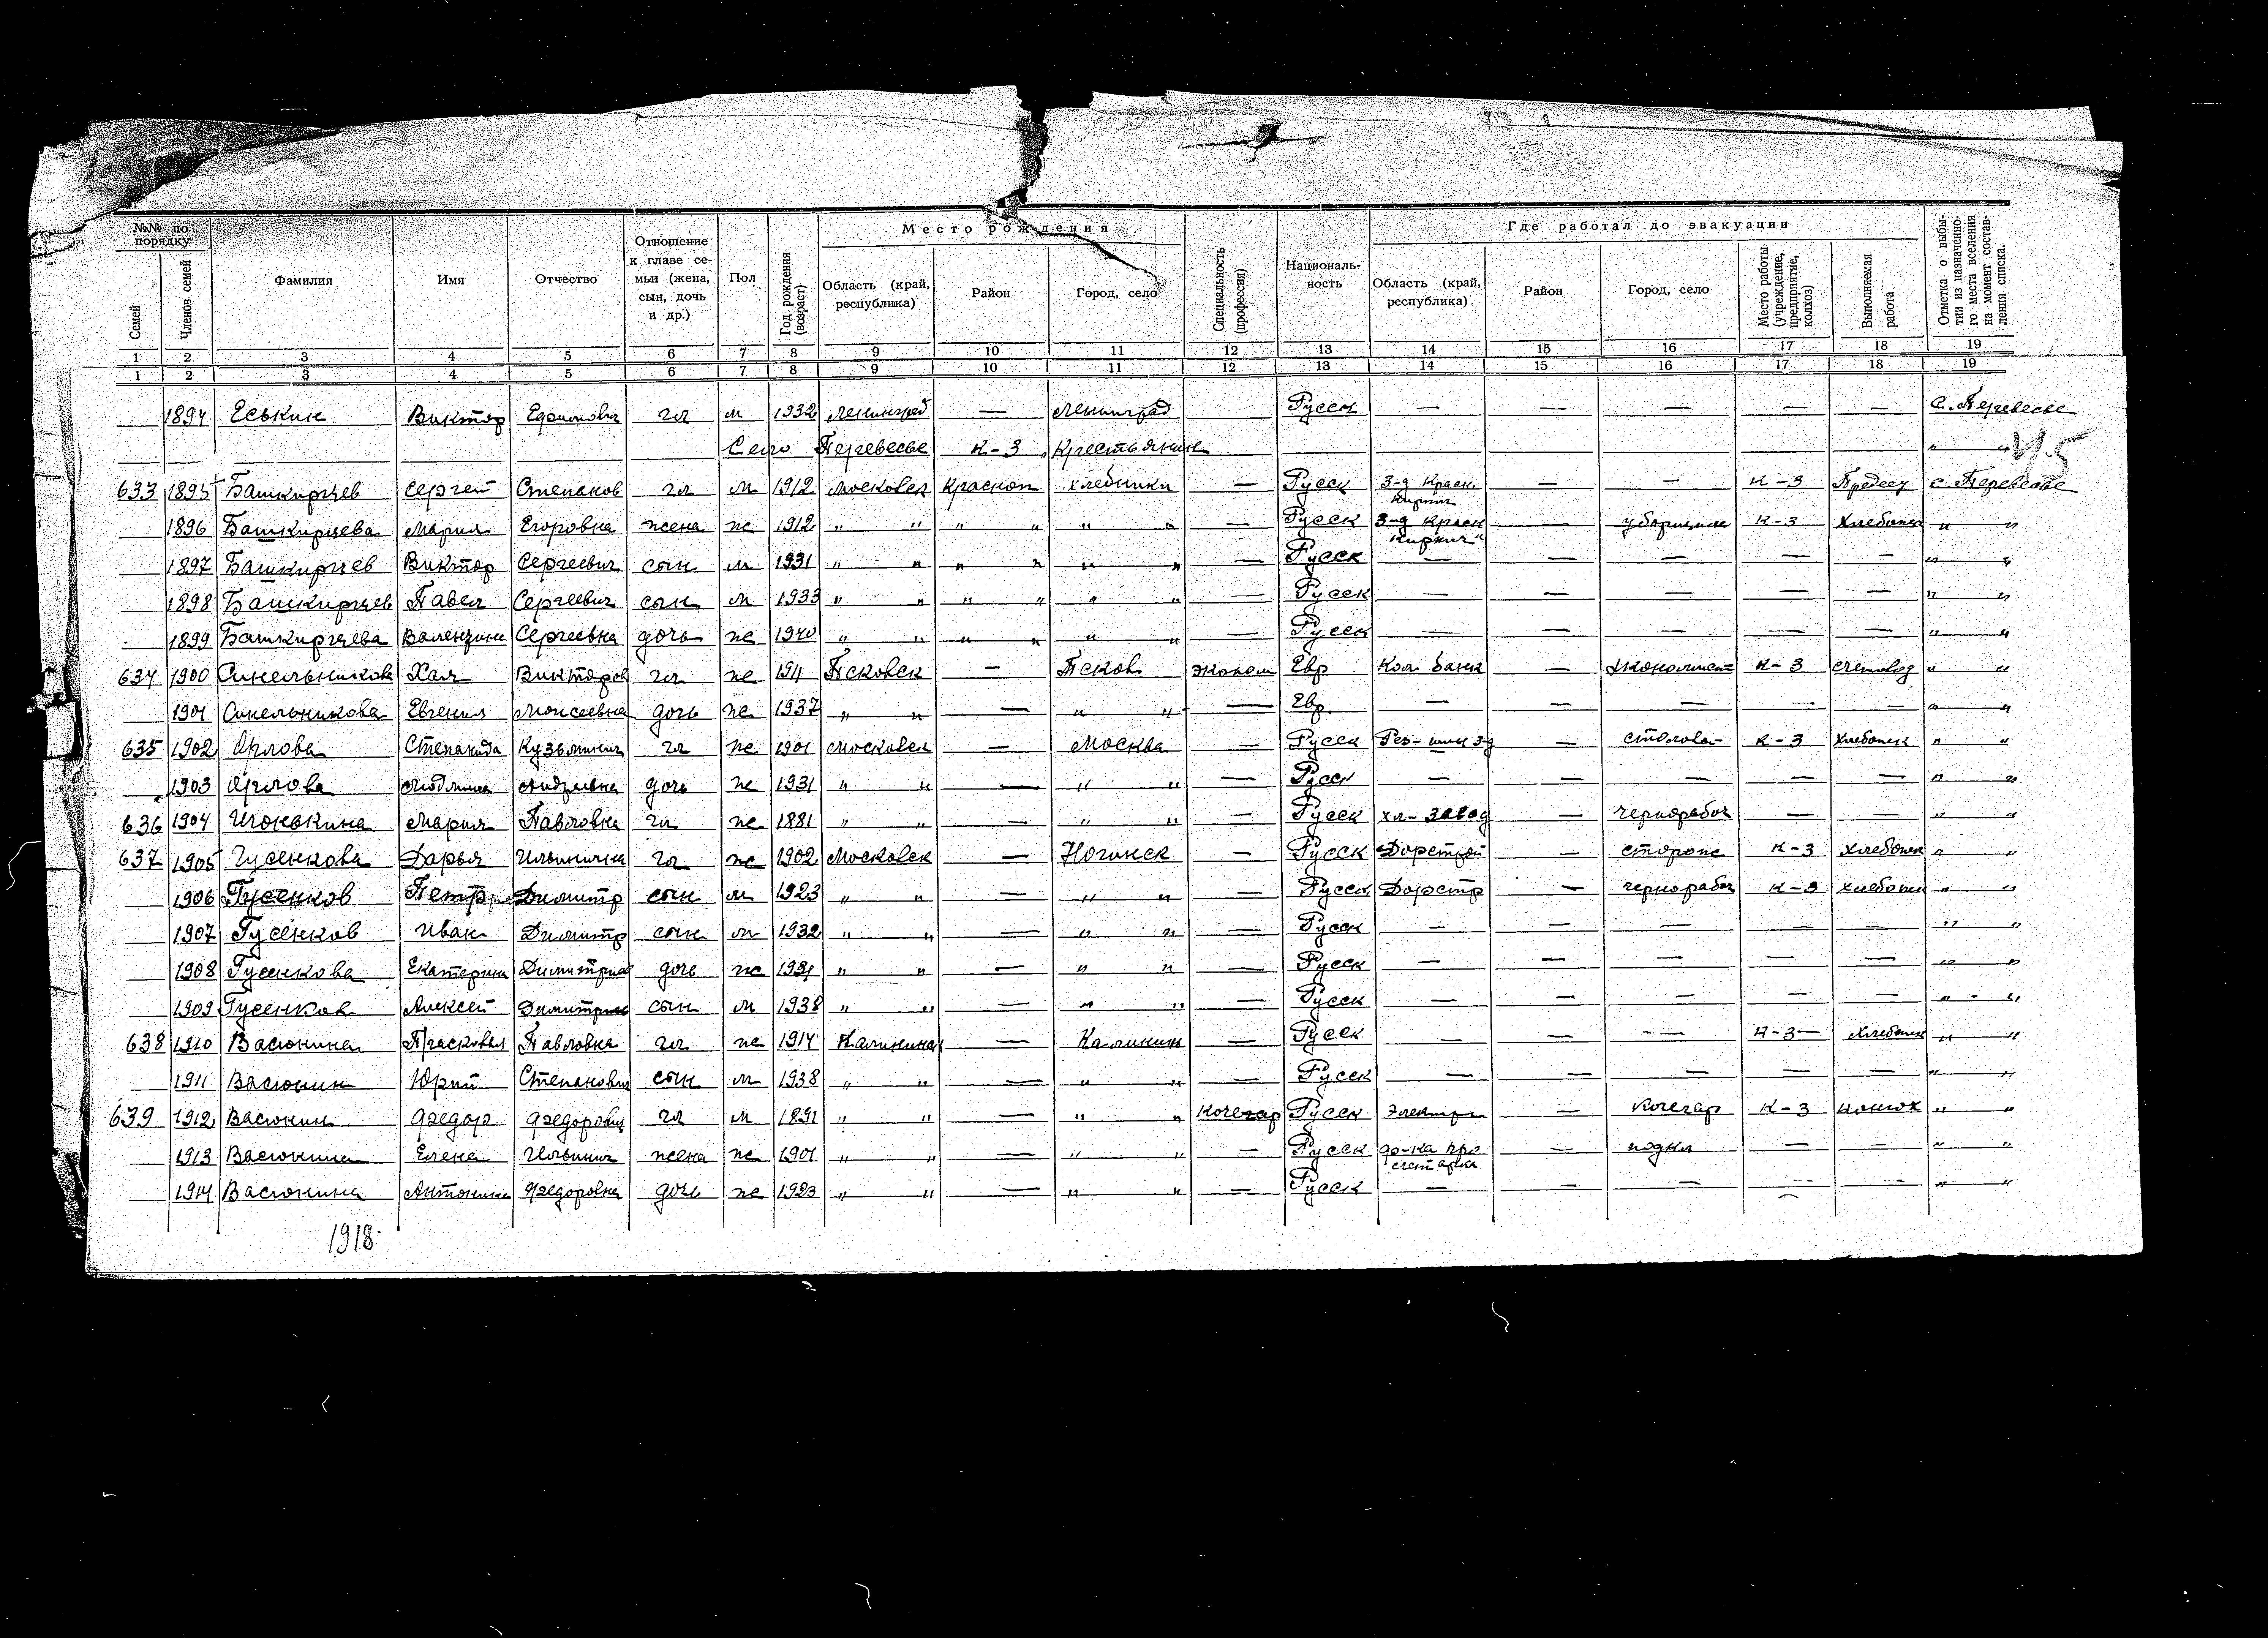 №№ по порядку
Семей
Членов семей
Фамилия
Имя
Отчество
Отношение к главе се-мьи (жена, сын, дочь и др.)
Пол
Год рождения (возраст)
Место рождения
Область (край, республика)
Район
Город, село
Специальность (профессия)
Националь-ность
Где работал до эвакуации
Область (край, республика).
Район
Город, село
Место работы (учреждение, предприятие, колхоз)
Выполняемая работа
Отметка о выбы-тии из назначенно-го места вселения на момент состав-ления списка.
1 2 3 4 5 6 7 8 9 10 11 12 13 14 15 16 17 18 19
1 2 3 4 5 6 7 8 9 10 11 12 13 14 15 16 17 18 19
1894 Еськин Виктор Ефимович гл м 1932 Ленинград — Ленинград Русск — — — — — с. Перевесье
Село Перевесье к-з Крестьянин " "
45
633 1895 Башкирцев Сергей Степанов гл м 1912 Московск Красноп Хлебники — Русск з-д Красн Кирпич — — к-з Председ с. Перевесье
1896 Башкирцева Мария Егоровна жена ж 1912 " " " " " " — Русск з-д Красн Кирпич" — уборщица к-з Хлебопек " "
1897 Башкирцев Виктор Сергеевич сын м 1931 " " " " " " — Русск — — — — — " "
1898 Башкирцев Павел Сергеевич сын м 1933 " " " " " " — Русск — — — — — " "
1899 Башкирцева Валентина Сергеевна дочь ж 1940 " " " " " " — Русск — — — — — " "
634 1900 Синельникова Хая Викторов гл ж 1911 Псковск — Псков эконом Евр Ком банк — экономист к-з счетовод " "
1901 Синельникова Евгения Моисеевна дочь ж 1937 " " — " " — Евр. — — — — — " "
635 1902 Орлова Степанида Кузьминич гл ж 1901 Московск — Москва — Русск Рез-шин з-д — столова- к-з хлебопек " "
1903 Орлова Людмила Андреевна дочь ж 1931 " " — " " — Русск — — — — — " "
636 1904 Мария Павловна гл ж 1881 " " — " " — Русск хл-завод — чернорабоч — — " "
637 1905 Гусенкова Дарья Ильинична гл ж 1902 Московск — Ногинск — Русск Дорстрой — сторож к-з хлебопек " "
1906 Гусенков Петр Димитр сын м 1923 " " — " " — Русск Дорстр — чернорабоч к-з хлебопек " "
1907 Гусенков Иван Димитр сын м 1932 " " — " " — Русск — — — — — " "
1908 Гусенкова Екатерина Димитриев дочь ж 1931 " " — " " — Русск — — — — — " "
1909 Гусенков Алексей Димитриев сын м 1938 " " — " " — Русск — — — — — " "
638 1910 Васюнина Прасковья Павловна гл ж 1914 Калининск — Калинин — Русск — — — к-з — хлебопек " "
1911 Васюнин Юрий Степанович сын м 1938 " " — " " — Русск — — — — — " "
639 1912 Васюнин Федор Федорович гл м 1891 " " — " " кочегар Русск электр — кочегар к-з конюх " "
1913 Васюнина Елена Ильинич жена ж 1901 " " — " " — Русск ф-ка про летарка — — — " "
1914 Васюнина Антонина Федоровна дочь ж 1923 " " — " " — Русск — — — — — " "
1918